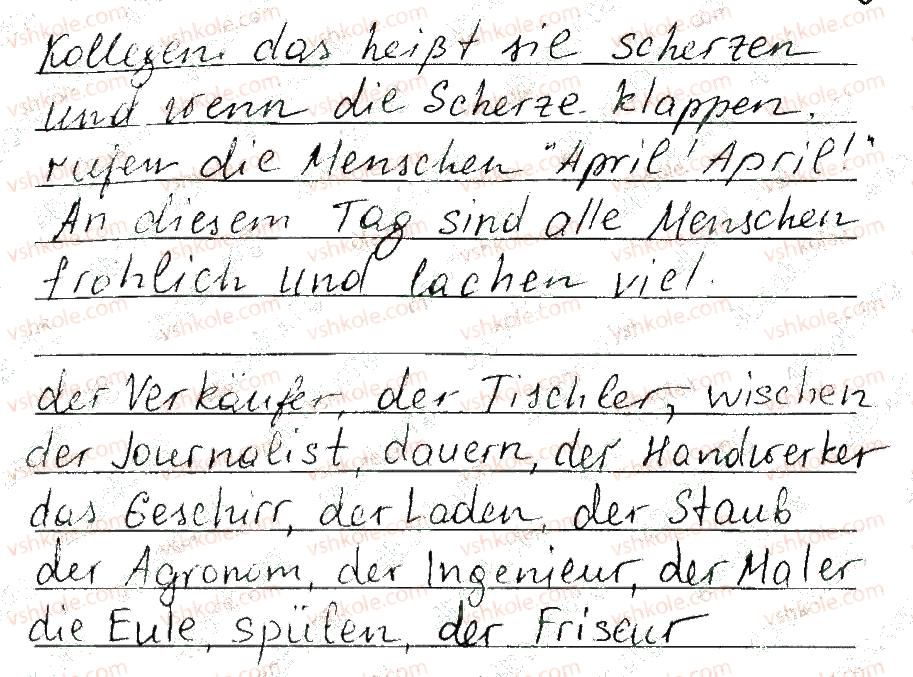 Kollegen. das heißt sie scherzen
und wenn die Scherze klappen,
rufen die Menschen "April! April!"
An diesem Tag sind alle Menschen
fröhlich und lachen viel.
der Verkäufer, der Tischler, wischen
der Journalist, dauern, der Handwerker
das Geschirr, der Laden, der Staub
der Agronom, der Ingenieur, der Maler
die Eule, spülen, der Friseur